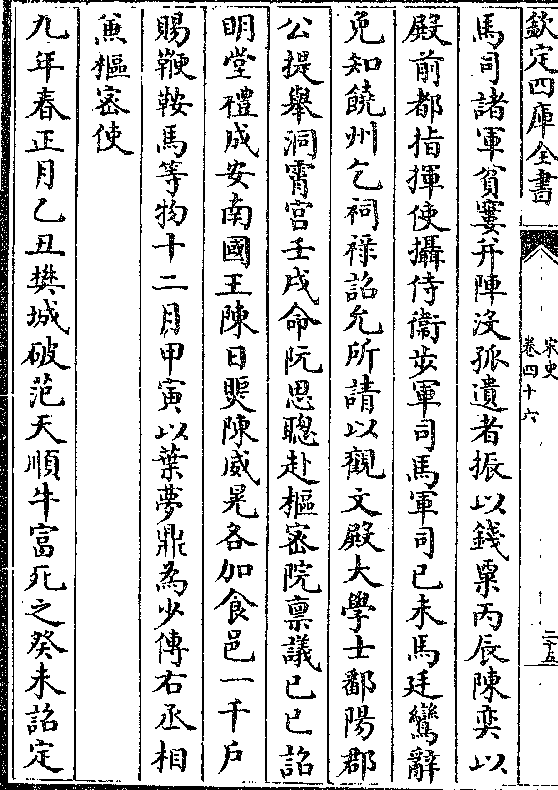 欽定四庫全書
宋史
卷四十六
二十五
馬司諸軍貧窶并陣沒孤遺者振以錢粟丙辰陳奕以
殿前都指揮使攝侍衛步軍司馬軍司己未馬廷鸞辭
免知饒州乞祠祿詔允所請以觀文殿大學士鄱陽郡
公提舉洞霄宮壬戌命阮思聰赴樞密院稟議己巳詔
明堂禮成安南國王陳日煚陳威晃各加食邑一千戶
賜鞭鞍馬等物十二月甲寅以葉夢鼎為少傅右丞相
兼樞密使
九年春正月乙丑樊城破范天順牛富死之癸未詔定